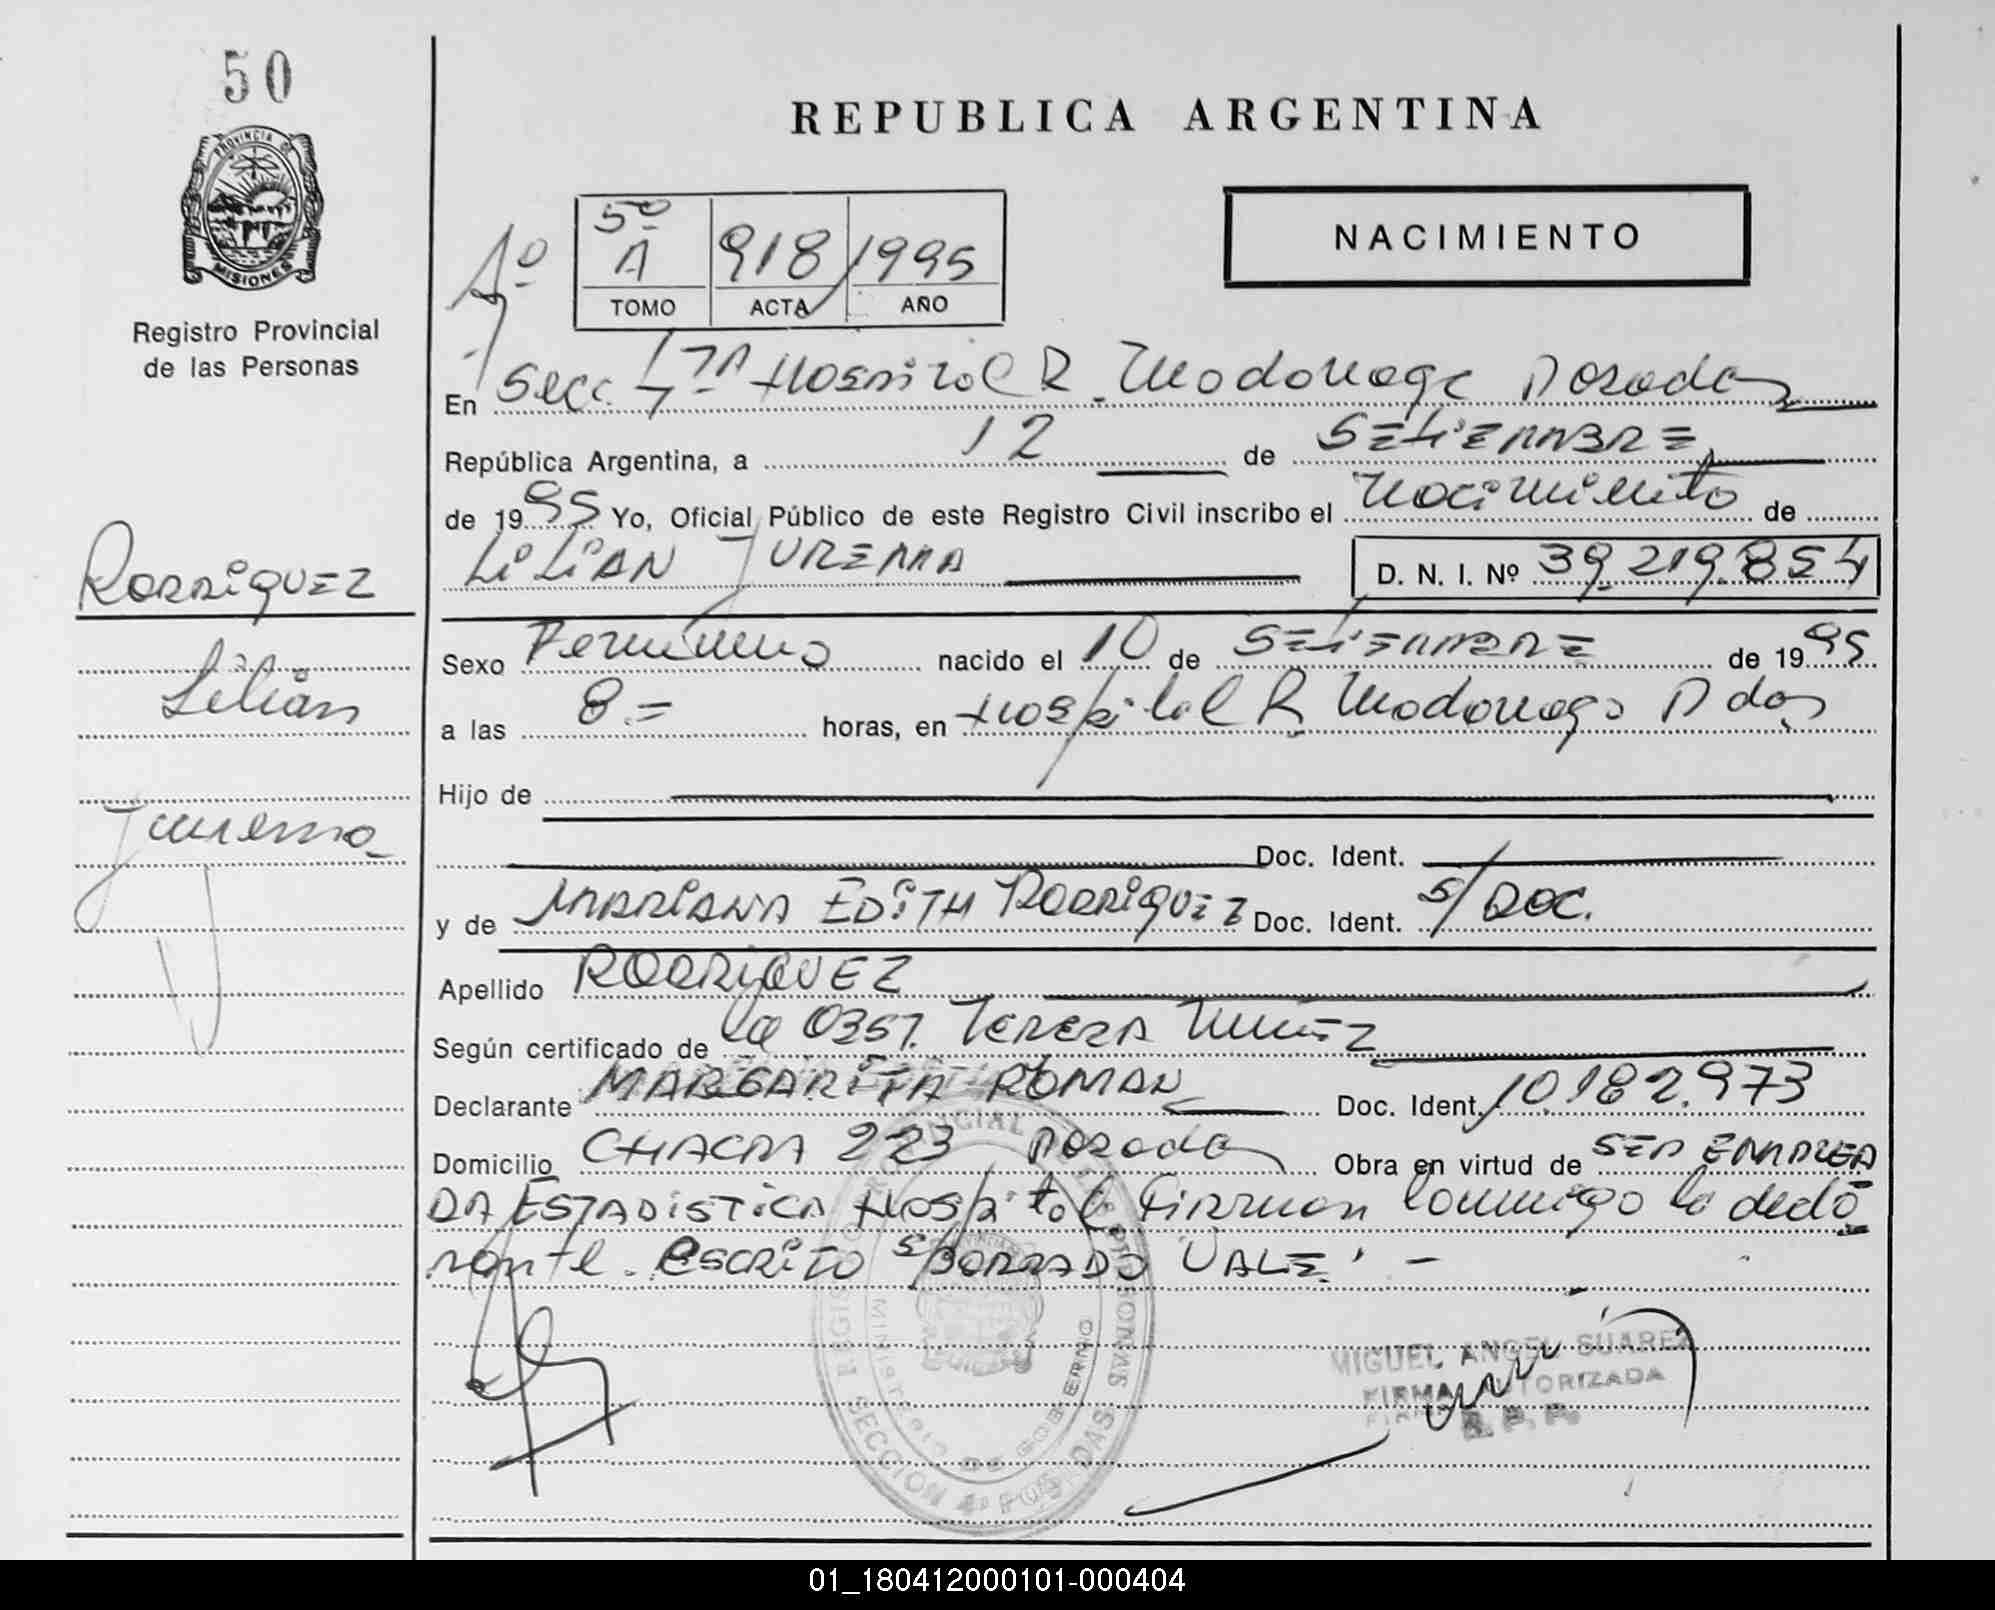 50
PROVINCIA DE
MISIONES
Registro Provincial
de las Personas
REPUBLICA ARGENTINA
NACIMIENTO
5º
A 918 1995
TOMO ACTA AÑO
En Secc. 4TA Hospital R. Madariaga Posadas
República Argentina, a 12 de SETIEMBRE
de 1995 Yo, Oficial Público de este Registro Civil inscribo el Nacimiento de
LiLiAN JUREMA D. N. I. Nº 39.219.854
RODRiGUEZ
Lilian
Jurema
Sexo Femenino nacido el 10 de SETIEMBRE de 1995
a las 8.= horas, en Hospital R Madariaga Pdas
Hijo de
Doc. Ident.
y de MARIANA EDITH RODRIGUEZ Doc. Ident. S/DOC.
Apellido RODRIGUEZ
Según certificado de la OBST. TEREZA
Declarante MARGARITA ROMAN Doc. Ident. 10.182.973
Domicilio CHACRA 223 Posadas Obra en virtud de SER EMPLEA
DA ESTADISTICA Hospital Firman conmigo la decla
rante. ESCRITO S/BORRADO VALE. -
REGISTRO PROVINCIAL DE LAS PERSONAS
MINISTERIO DE GOBIERNO
SECCION 4ª POSADAS
MIGUEL ANGEL SUAREZ
FIRMA AUTORIZADA
R. P. P.
01_180412000101-000404